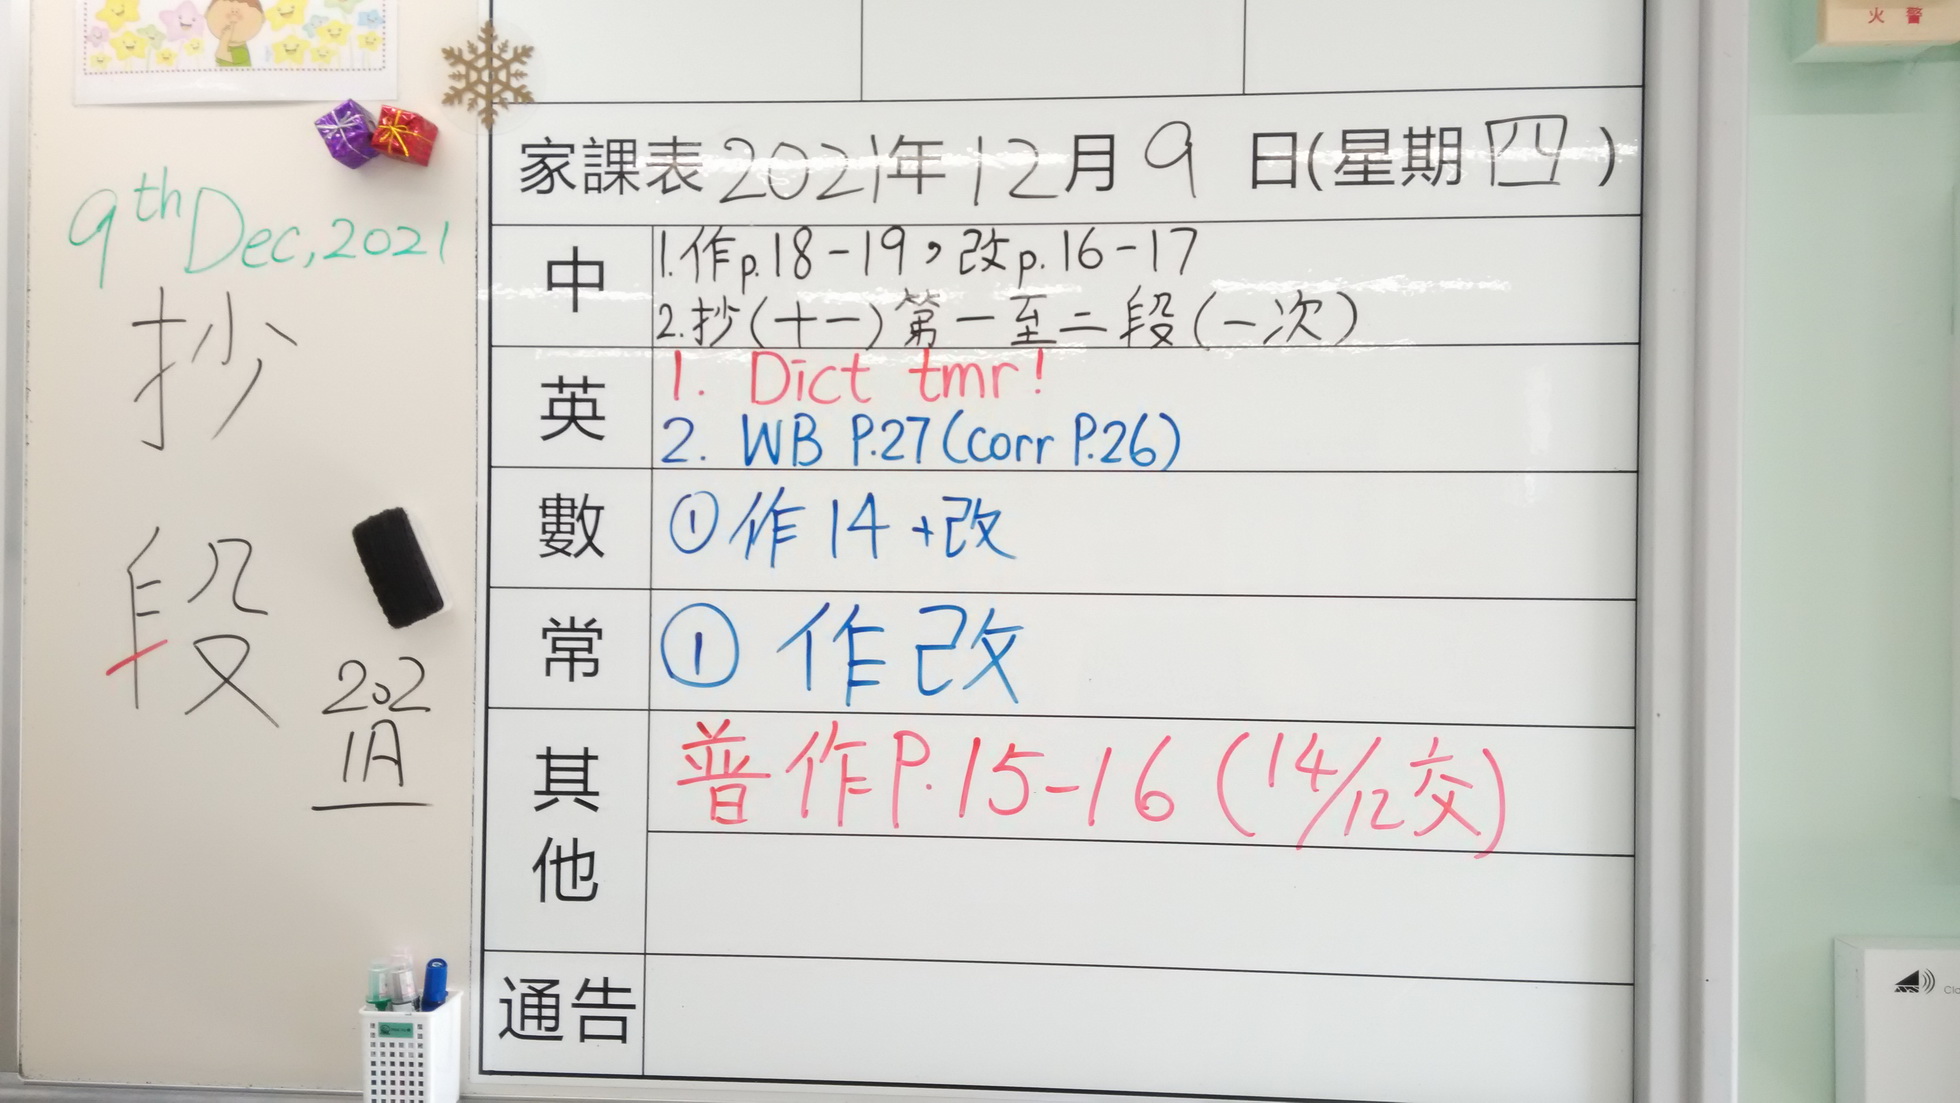 火 警
家課表 2021年 12月 9 日(星期四)
9th Dec, 2021
抄
段
202
1A
中
1.作p.18-19，改p.16-17
2.抄(十一)第一至二段(一次)
英
1. Dict tmr!
2. WB P.27(corr P.26)
數
①作14+改
常
① 作改
其他
普作P.15-16 (14/12交)
通告